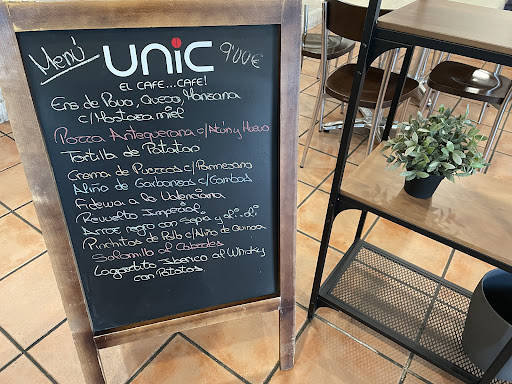 Menú
UNIC
9'00€
EL CAFE...CAFE!
Ens de Pavo, Queso, Manzana
c/Mostaza miel
Pozza Antequerana c/Atún y Huevo
Tortilla de Patatas
Crema de Puerros c/Parmesano
Aliño de Garbanzos c/Gambas
Fideua a la Valenciana
Revuelto Imperial
Arroz negro con Sepia y ali-oli
Pinchitos de Pollo c/Aliño de Quinoa
Solomillo al Cabrales
Lagartito Iberico al Whisky
con Patatas